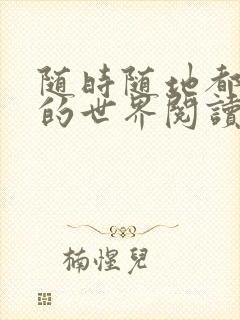 随時随地都
的世界閱讀
楠惺兒